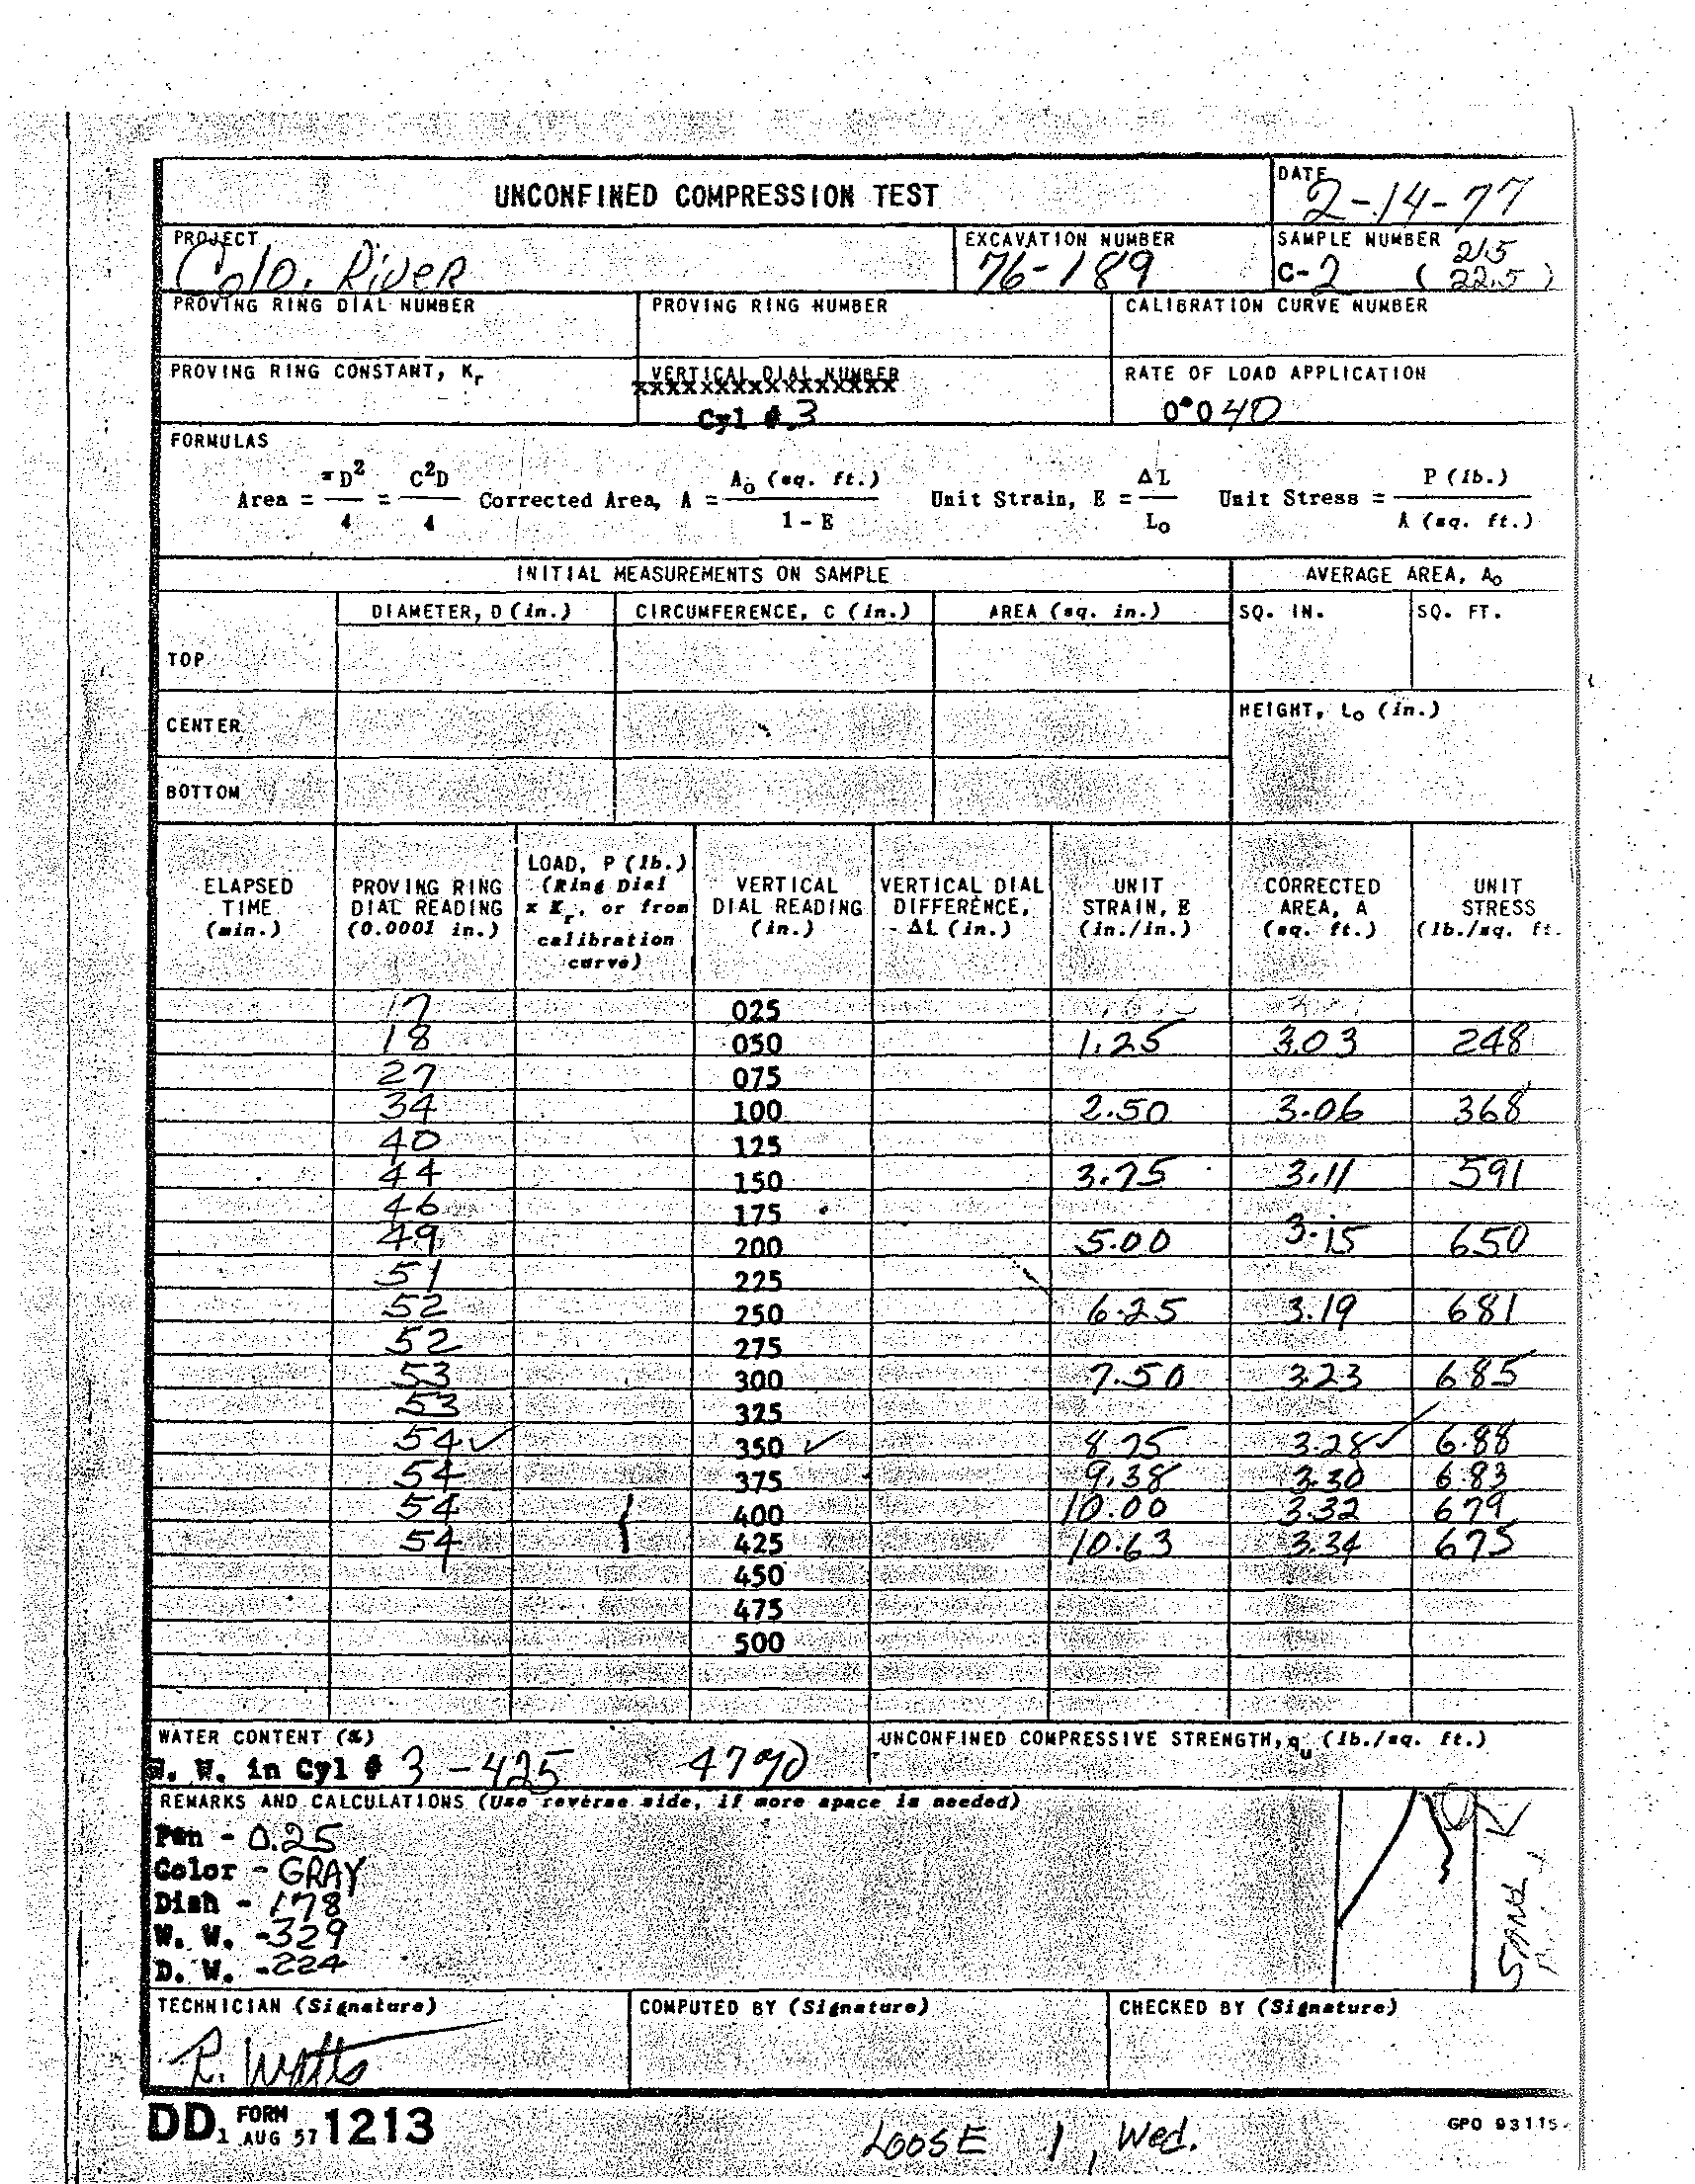 UNCONFINED COMPRESSION TEST
DATE
2-14-77
PROJECT
Colo. River
EXCAVATION NUMBER
76-189
SAMPLE NUMBER 21.5
C-2 ( 22.5 )
PROVING RING DIAL NUMBER
PROVING RING NUMBER
CALIBRATION CURVE NUMBER
PROVING RING CONSTANT, Kr
VERTICAL DIAL NUMBER
xxxxxxxxxxxxxxxxx
Cyl # 3
RATE OF LOAD APPLICATION
0.040
FORMULAS
Area = πD²/4 = C²D/4 Corrected Area, A = Ao (sq. ft.)/1 - E Unit Strain, E = ΔL/Lo Unit Stress = P (lb.)/A (sq. ft.)
INITIAL MEASUREMENTS ON SAMPLE
AVERAGE AREA, Ao
DIAMETER, D (in.) CIRCUMFERENCE, C (in.) AREA (sq. in.) SQ. IN. SQ. FT.
TOP
CENTER
HEIGHT, Lo (in.)
BOTTOM
ELAPSED TIME (min.)
PROVING RING DIAL READING (0.0001 in.)
LOAD, P (lb.) (Ring Dial x Kr, or from calibration curve)
VERTICAL DIAL READING (in.)
VERTICAL DIAL DIFFERENCE, ΔL (in.)
UNIT STRAIN, E (in./in.)
CORRECTED AREA, A (sq. ft.)
UNIT STRESS (lb./sq. ft.
17 025
18 050 1.25 3.03 248
27 075
34 100 2.50 3.06 368
40 125
44 150 3.75 3.11 591
46 175
49 200 5.00 3.15 650
51 225
52 250 6.25 3.19 681
52 275
53 300 7.50 3.23 685
53 325
54 ✓ 350 ✓ 8.75 3.28 ✓ 6.88
54 375 9.38 3.30 6.83
54 400 10.00 3.32 679
54 425 10.63 3.34 675
450
475
500
WATER CONTENT (%)
W. W. in Cyl # 3 - 425 47%
UNCONFINED COMPRESSIVE STRENGTH, qu (lb./sq. ft.)
REMARKS AND CALCULATIONS (Use reverse side, if more space is needed)
Pen - 0.25
Color - GRAY
Dish - 178
W. W. - 329
D. W. - 224
TECHNICIAN (Signature)
R. Watts
COMPUTED BY (Signature)
CHECKED BY (Signature)
DD FORM 1 AUG 57 1213
LOOSE 1, Wed.
GPO 93115